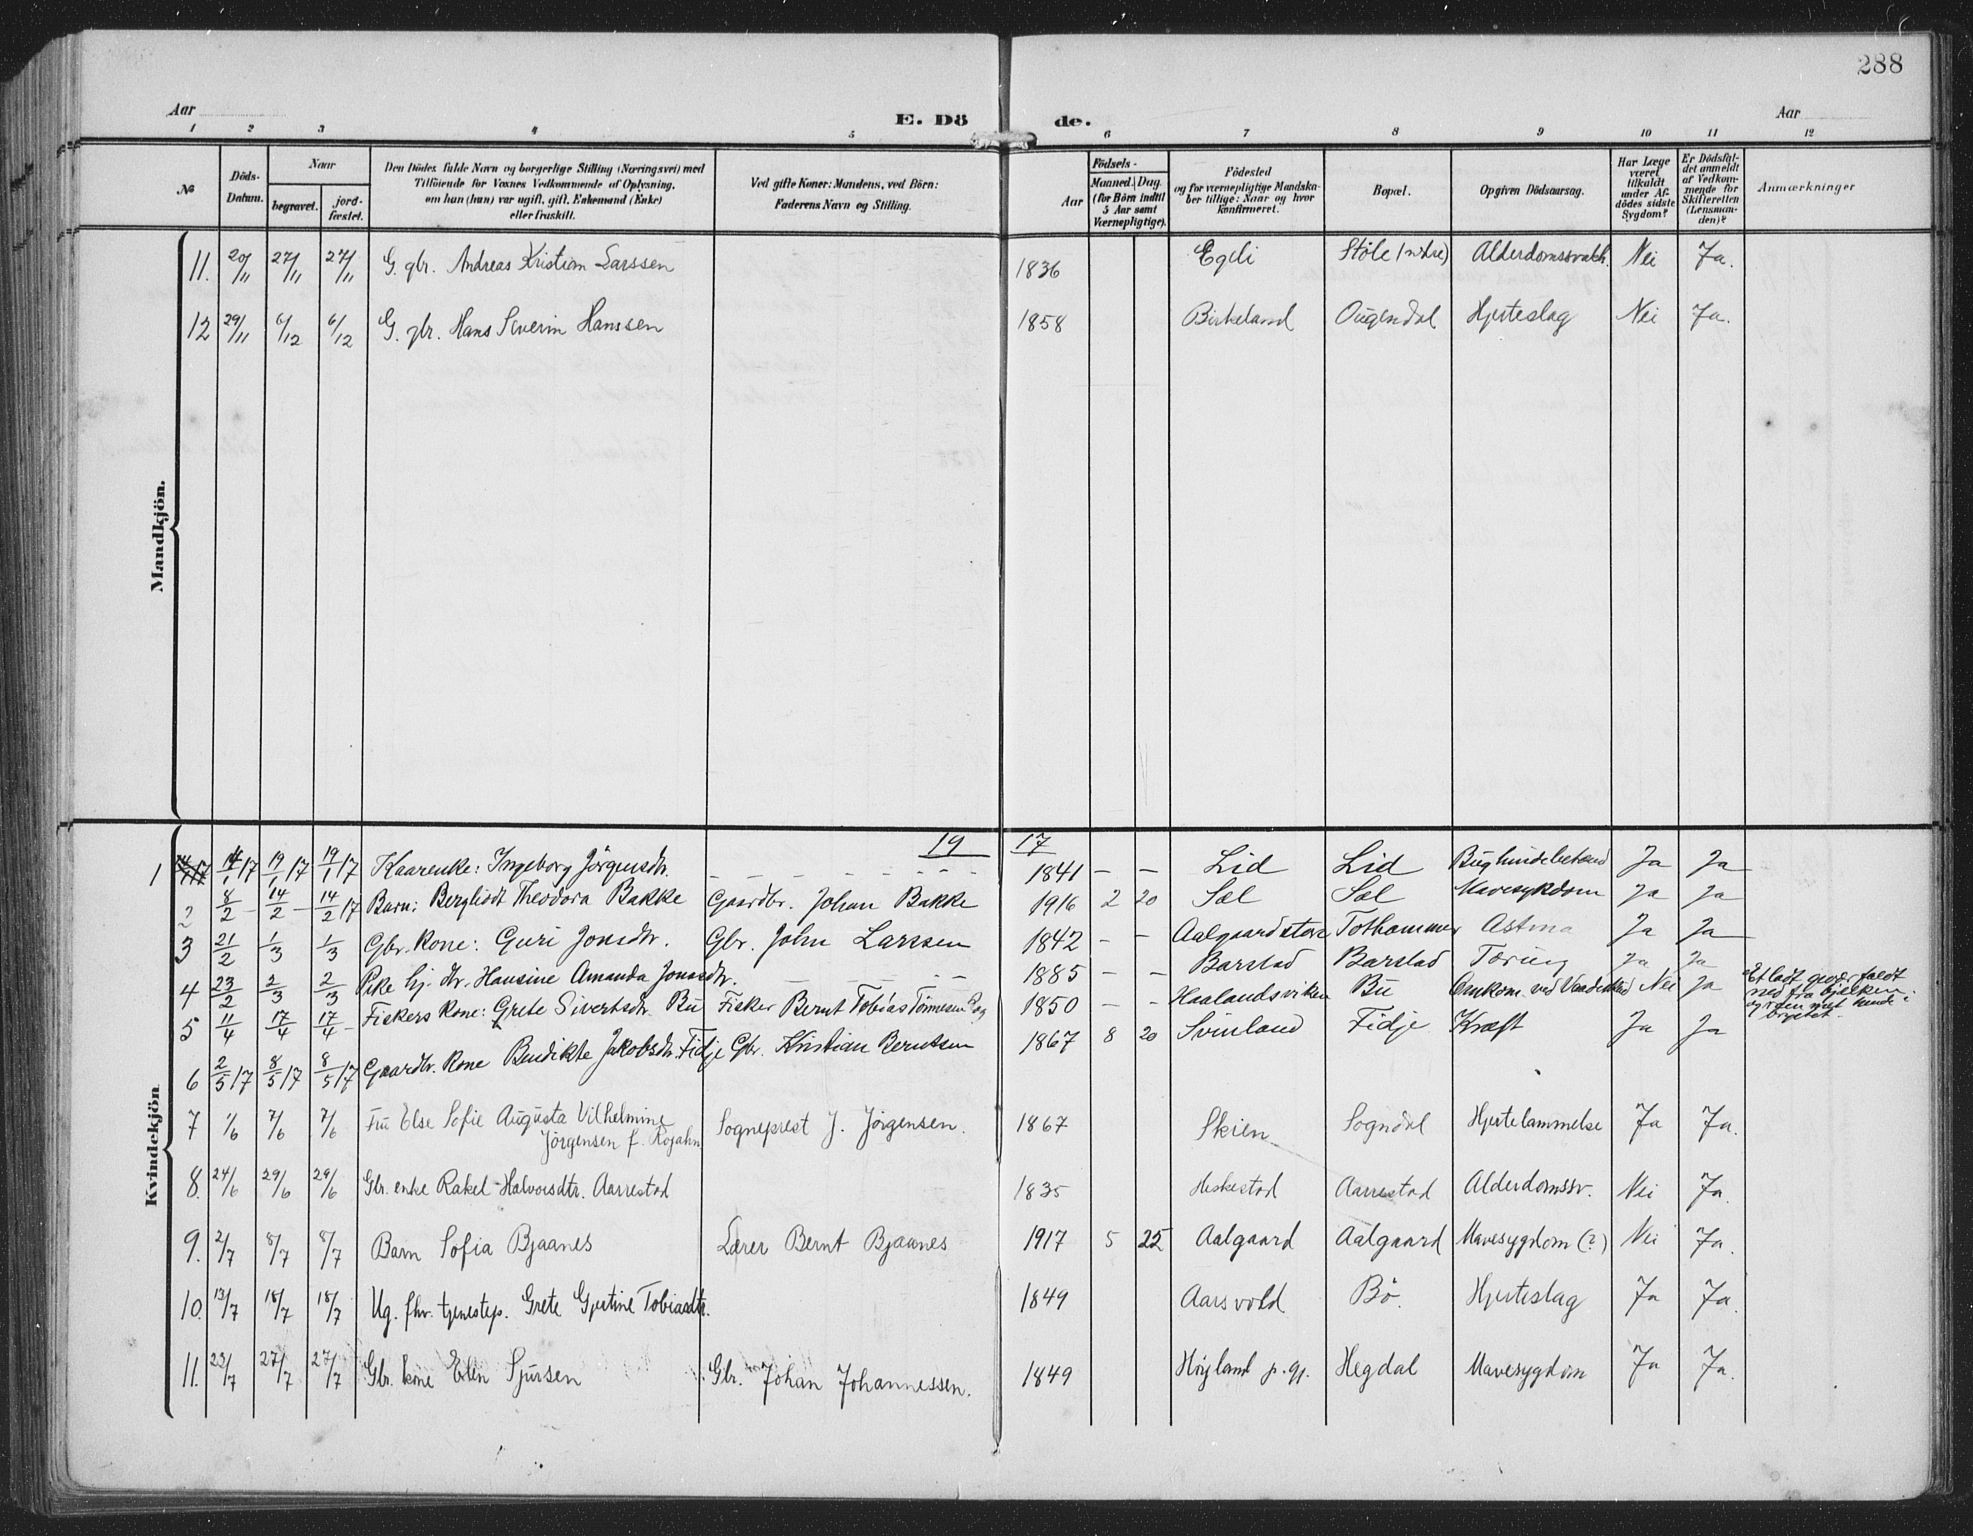 288
Aar
E. Dö
de.
Aar
1 2 3 4 5 6 7 8 9 10 11 12
No
Döds-
Datum.
Naar
begravet.
jord-
fæstet.
Den Dödes fulde Navn og borgerlige Stilling (Næringsvei) med
Tilföiende for Voxnes Vedkommende af Oplysning,
om han (hun) var ugift, gift, Enkemand (Enke)
eller fraskilt.
Ved gifte Koner: Mandens, ved Börn:
Faderens Navn og Stilling.
Aar
Födsels-
Maaned. Dag
(for Börn indtil
5 Aar samt
Værnepligtige).
Födested
og for værnepligtige Mandska-
ber tillige: Naar og hvor
konfirmeret.
Bopæl.
Opgiven Dödsaarsag.
Har Læge
været
tilkaldt
under Af-
dödes sidste
Sygdom?
Er Dödsfal-
det anmeldt
af Vedkom-
mende for
Skifteretten
(Lensman-
den)?
Anmærkninger
Mandkjön.
11. 20/11 27/11 27/11 G. gbr. Andreas Kristian Larssen 1836 Egeli Støle Alderdomssvakh. Nei Ja.
12 29/11 6/12 6/12 G. gbr. Hans Severin Hanssen 1858 Birkeland Ougendal Hjerteslag Nei Ja.
Kvindekjön
19 17
1 14/1 17 19/1 17 19/1 17 Kaarenke: Ingeborg Jörgensdtr. 1841 — — Lid Lid Ja Ja
2 8/2 — 14/2 — 14/2 17 Barn: Bergliodt Theodora Bakke Gaardbr. Johan Bakke 1916 2 20 Sæl Sæl Mavesykdom Ja Ja
3 21/2 1/3 1/3 Gbr. Kone: Guri Jonsdtr. Gbr. John Larssen 1842 — — Aalgaardstore Tothammer Astma Ja Ja
4 23/2 2/3 2/3 Pike hj. dtr. Hansine Amanda Jonasdtr. 1885 — — Barstad Barstad Tæring Ja Ja
5 11/4 17/4 17/4 — Fiskers Kone: Grete Sivertsdtr. Bu Fisker Bernt Tobias Tönnesen 1850 — — Haalandsviken Bu Omkom ved Nei Ja
Et ladt gevær faldt
ned fra bjelken
6 2/5 17 8/5 17 8/5 17 Gaardbr. Kone Bendikte Jakobsdtr. Fidje Gbr. Kristian Berntsen 1867 8 20 Svinland Fidje Kræft Ja Ja
7 1/6 7/6 7/6 Fru Else Sofie Augusta Vilhelmine
Jörgensen f. Rojahn Sogneprest J. Jörgensen. 1867 Skien Sogndal Hjertelammelse Ja Ja.
8. 24/6 29/6 29/6 Gbr. enke Rakel Halvorsdtr. Aarrestad 1835 Heskestad Aarrestad Alderdomssv. Nei Ja.
9. 2/7 8/7 8/7 Barn Sofia Bjaanes Lærer Bernt Bjaanes 1917 5 25 Aalgaard Aalgaard Mavesygdom (?) Nei Ja.
10. 13/7 18/7 18/7 Ug. fhv. tjenestep. Grete Gjertine Tobiasdtr. 1849 Aarsvold Bö. Hjerteslag Ja Ja.
11. 23/7 27/7 27/7 Gbr. kone Elen Sjursen Gbr. Johan Johannessen. 1849 Höyland p. gj. Hegdal Mavesygdom Ja Ja.